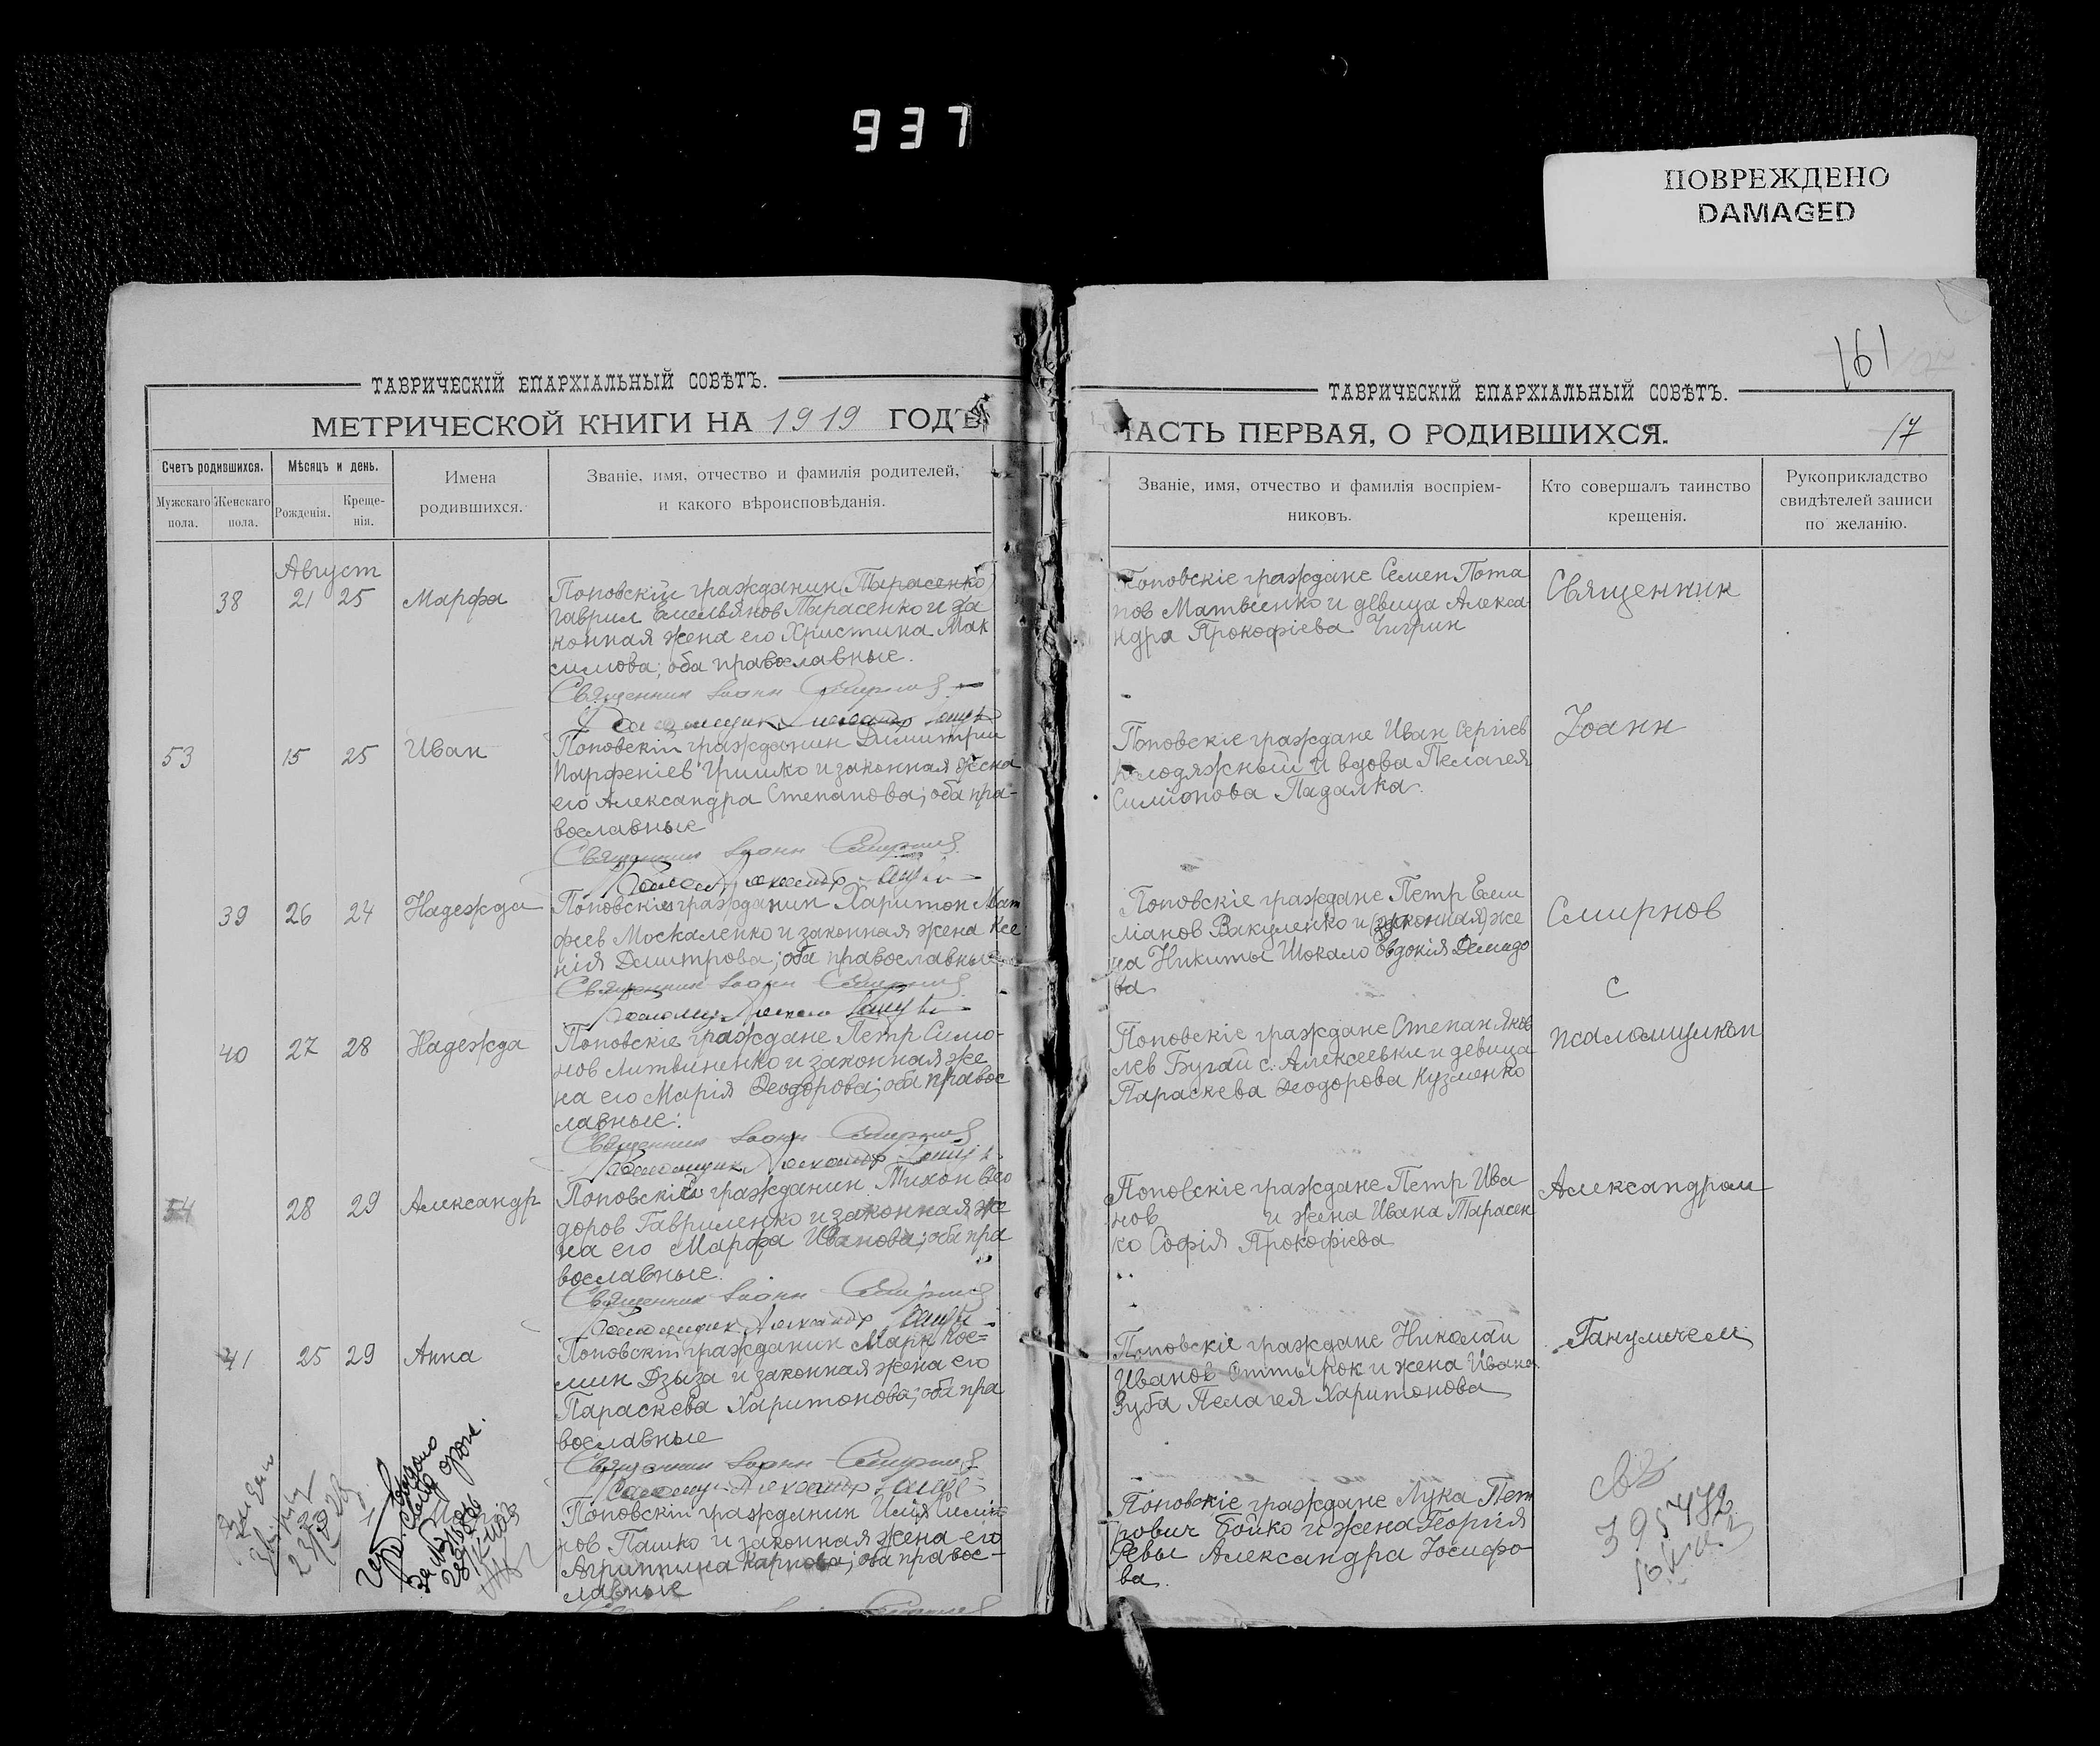 937
ПОВРЕЖДЕНО
DAMAGED
ТАВРИЧЕСКІЙ ЕПАРХІАЛЬНЫЙ СОВѢТЪ.
МЕТРИЧЕСКОЙ КНИГИ НА 1919 ГОДЪ
Счетъ родившихся.
Мужскаго пола.
Женскаго пола.
Мѣсяцъ и день.
Рожденія.
Крещенія.
Имена
родившихся.
Званіе, имя, отчество и фамилія родителей,
и какого вѣроисповѣданія.
Август
38 21 25 Марфа
Поповскій гражданин (Тарасенко)
Гаврил Емельянов Тарасенко и за
конная жена его Христина Мак
симова; оба православные.
Священник Іоанн Смирнов
53 15 25 Иван
Поповскій гражданин Димитрий
Парфеніев Гришко и законная жена
его Александра Степанова; оба пра-
вославные
Священник Іоанн Смирнов
39 26 24 Надежда
Поповскій гражданин Харитон Мат
феев Москаленко и законная жена Ксе
нія Дмитрова; оба православные
Священник Іоанн Смирнов
40 27 28 Надежда
Поповскіе граждане Петр Симо-
нов Литвиненко и законная же
на его Марія Феодорова; оба правос
лавные.
Священник Іоанн Смирнов
Псаломщик Александр
54 28 29 Александр
Поповскій гражданин Тихон Фео
доров Гавриленко и законная же
на его Марфа Иванова; оба пра
вославные.
Священник Іоанн Смирнов
Псаломщик Александр
41 25 29 Анна
Поповскій гражданин Марк Кос=
мин Дзыза и законная жена его
Параскева Харитонова; оба пра
вославные
Священник Іоанн Смирнов
Александр
Поповскій гражданин Илія Симио
нов Пашко и законная жена его
Агриппина Карпова; оба правос-
лавные
161
ТАВРИЧЕСКІЙ ЕПАРХІАЛЬНЫЙ СОВѢТЪ.
ЧАСТЬ ПЕРВАЯ, О РОДИВШИХСЯ.
17
Званіе, имя, отчество и фамилія воспріем-
никовъ.
Кто совершалъ таинство
крещенія.
Рукоприкладство
свидѣтелей записи
по желанію.
Поповскіе граждане Семен Пота
пов Матвіенко и девица Алекса
ндра Прокофіева Чигрин
Священник
Поповскіе граждане Иван Сергіев
Колодяжный и вдова Пелагея
Симионова Падалка.
Іоанн
Поповскіе граждане Петр Еми
ліанов Вакуленко и (законная) же
на Никиты Шокало Евдокія Демидо
ва
Смирнов
с
Поповскіе граждане Степан Яков
лев Бугай с. Алексеевки и девица
Параскева Феодорова Кузменко
псаломщиком
Поповскіе граждане Петр Ива
нов и жена Ивана Тарасен
ко Софія Прокофіева
Александром
Поповскіе граждане Николай
Иванов Оттырок и жена Ивана
Зуба Пелагея Харитонова
Ганумичем
Поповскіе граждане Лука Пет
рович Бойко и жена Георгія
Ревы Александра Іосифо-
ва.